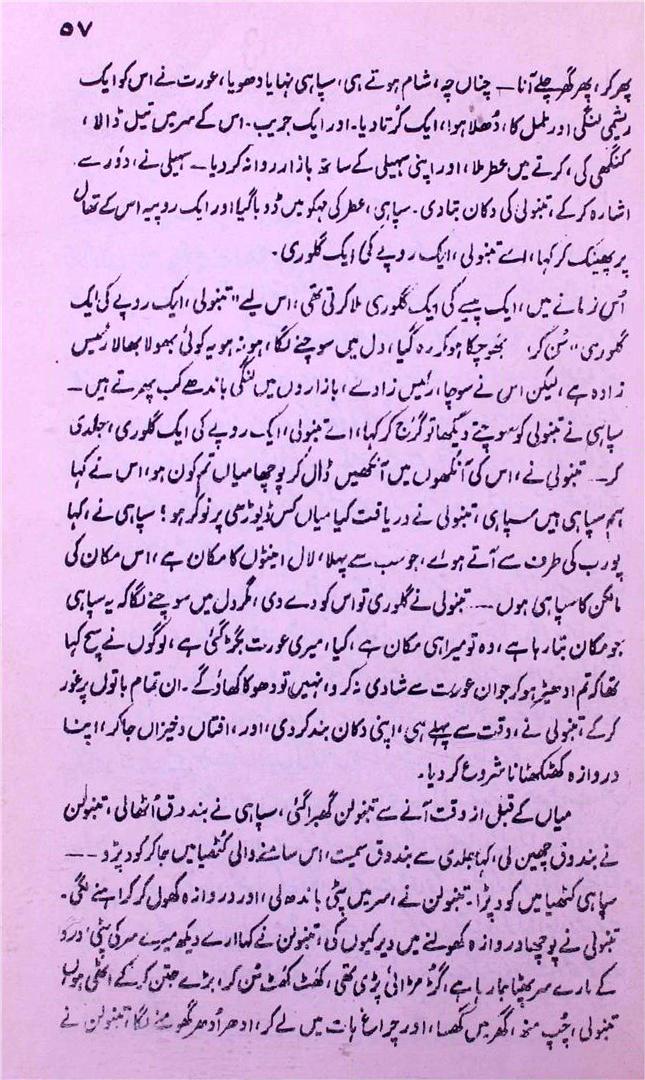 ۵۷
پھر کر، پھر گھر چلے آنا — چناں چہ، شام ہوتے ہی، سپاہی نہایا دھویا، عورت نے اس کو ایک
ریشمی لنگی اور ململ کا، دُھلا ہوا، ایک کُرتا دیا۔ اور ایک جریب۔ اس کے سر میں تیل ڈالا،
کنگھی کی، کرتے میں عطر ملا، اور اپنی سہیلی کے ساتھ بازار روانہ کر دیا — سہیلی نے، دور سے
اشارہ کر کے، تنبولی کی دکان بتا دی۔ سپاہی، عطر کی مہکو میں ڈوبا گیا اور ایک روپیہ اس کے تھال
پر پھینک کر کہا، اے تنبولی، ایک روپے کی ایک گلوری۔
اُس زمانے میں، ایک پیسے کی ایک گلوری ملا کرتی تھی، اس لیے "تنبولی، ایک روپے کی ایک
گلوری" سُن کر، بھوچکا ہو کر رہ گیا، دل میں سوچنے لگا، ہو نہ ہو یہ کوئی بھولا بھالا رئیس
زادہ ہے، لیکن اس نے سوچا، رئیس زادے، بازاروں میں لنگی باندھے کب پھرتے ہیں —
سپاہی نے تنبولی کو سوچتے دیکھا تو گرج کر کہا، اے تنبولی، ایک روپے کی ایک گلوری، جلدی
کر — تنبولی نے، اس کی آنکھوں میں آنکھیں ڈال کر پوچھا میاں تم کون ہو، اس نے کہا
ہم سپاہی ہیں سپاہی، تنبولی نے دریافت کیا میاں کس ڈیوڑھی پر نوکر ہو؟ سپاہی نے، کہا
پورب کی طرف سے آتے ہوئے، جو سب سے پہلا، لال اینٹوں کا مکان ہے، اس مکان کی
مالکن کا سپاہی ہوں — تنبولی نے گلوری تو اس کو دے دی، مگر دل میں سوچنے لگا کہ یہ سپاہی
جو مکان بتا رہا ہے، وہ تو میرا ہی مکان ہے، کیا، میری عورت بگڑ گئی ہے، لوگوں نے سچ کہا
تھا کہ تم ادھیڑ ہو کر جوان عورت سے شادی نہ کرو، نہیں تو دھوکا کھاؤ گے۔ ان تمام باتوں پر غور
کر کے، تنبولی نے، وقت سے پہلے ہی، اپنی دکان بند کر دی، اور، افتاں و خیزاں جا کر، اپنا
دروازہ کھٹکھٹانا شروع کر دیا۔
میاں کے قبل از وقت آنے سے تنبولن گھبرا گئی، سپاہی نے بندوق اُٹھالی، تنبولن
نے بندوق چھین لی، کہا جلدی سے بندوق سمیت، اس سامنے والی کُٹھیا میں جا کر کود پڑو —
سپاہی کٹھیا میں کود پڑا۔ تنبولن نے، سر میں پٹی باندھ لی، اور دروازہ کھول کر کراہنے لگی۔
تنبولی نے پوچھا دروازہ کھولنے میں دیر کیوں کی، تنبولن نے کہا ارے دیکھ میرے سر کی پٹی، درد
کے مارے سر پھٹا جا رہا ہے، گُڑ مُڑائی پڑی تھی، کھٹ کھٹ سُن کر، بڑے جتن کر کے اٹھی ہوں
تنبولی، چُپ منھ، گھر میں گھسا، اور چراغ ہات میں لے کر، ادھر اُدھر گھومنے لگا، تنبولن نے